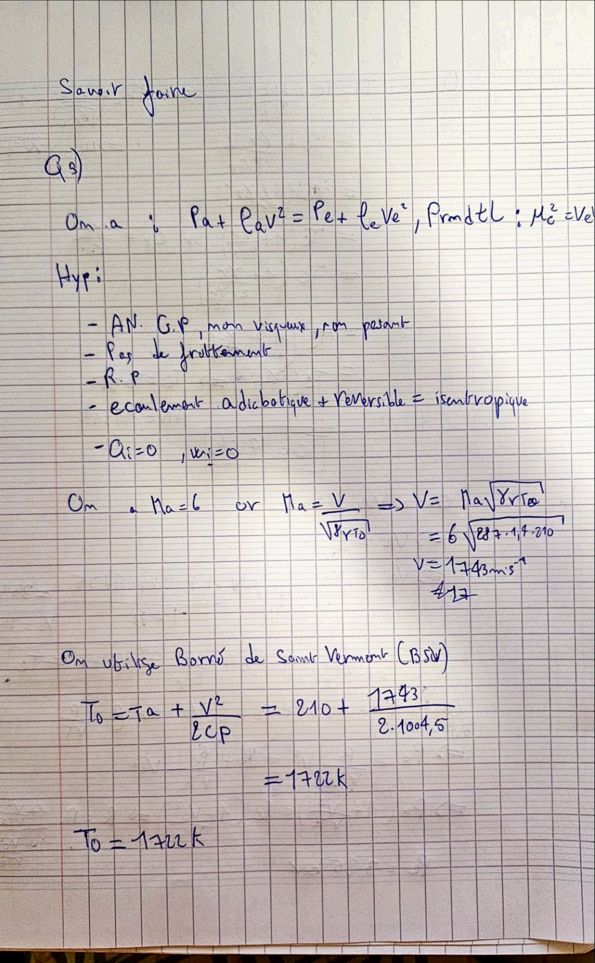 Savoir faire
Q3)
On a : Pa + ρaV² = Pe + ρeVe², Prmdtl : Mc² = Ve
Hyp:
- AN. G.P, non visqueux, non pesant
- Pas de frottement
- R.P
- ecoulement adiabatique + reversible = isentropique
- Qi=0 , wi=0
On a Ma=6 or Ma = V/√γrT∞ => V= Ma√γrT∞
= 6√287·1,4·210
V= 1743 m·s⁻¹
17
On utilise Barré de Saint Vermont (BSV)
To = Ta + V²/2Cp = 210 + 1743/2.1004,5
= 1722 K
To = 1722 K